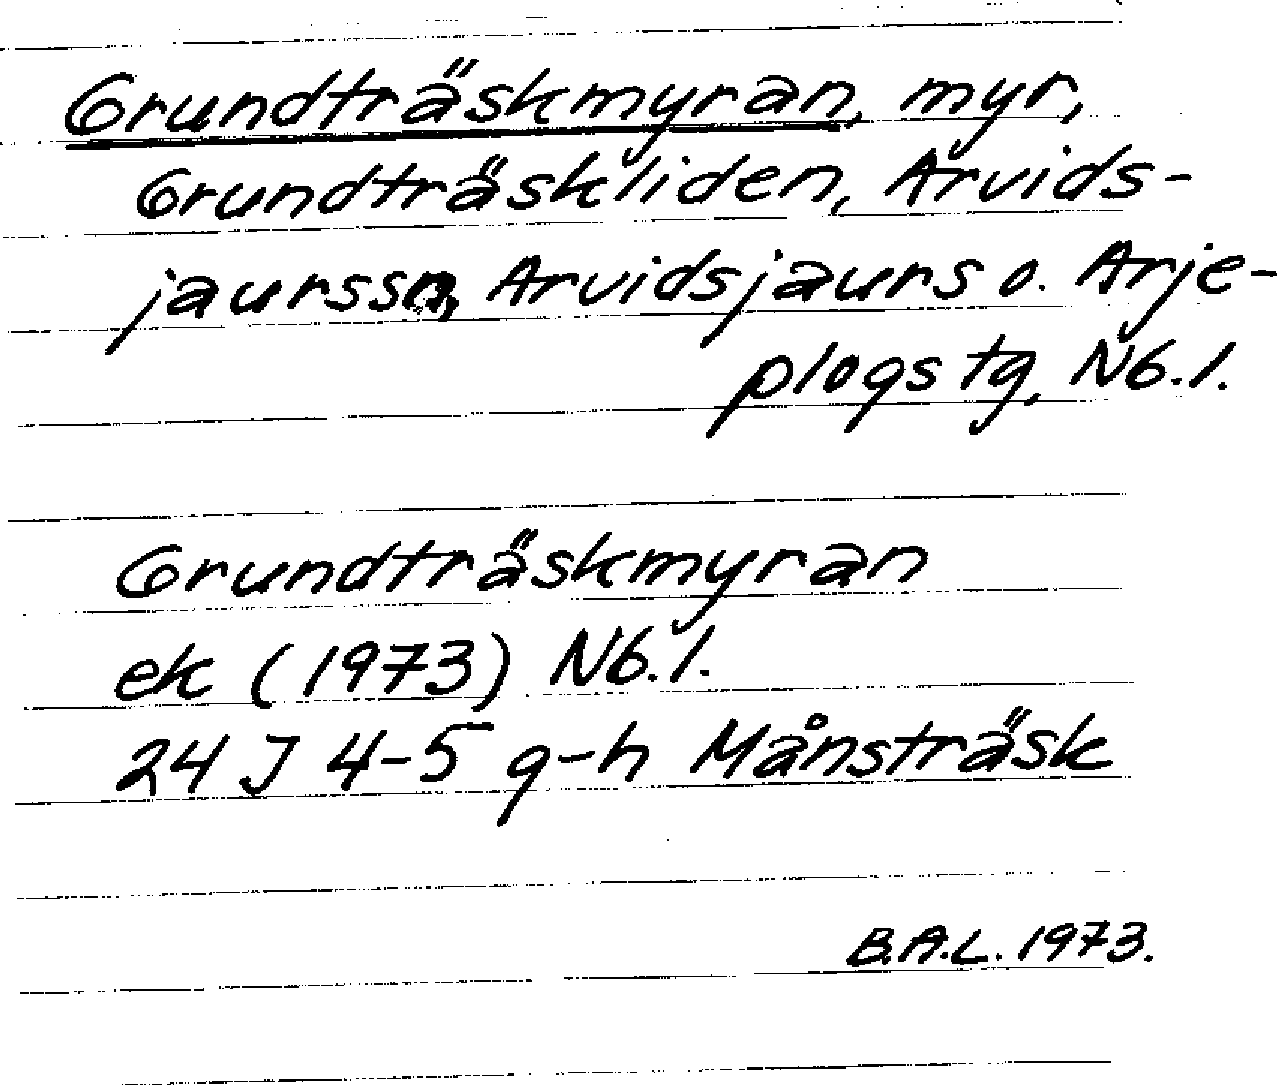 Grundträskmyran, myr,
Grundträskliden, Arvids-
jaurssn, Arvidsjaurs o. Arje-
plogs tg, N6.1.
Grundträskmyran
ek (1973) N6.1.
24 J 4-5 g-h Månsträsk
B.A.L. 1973.